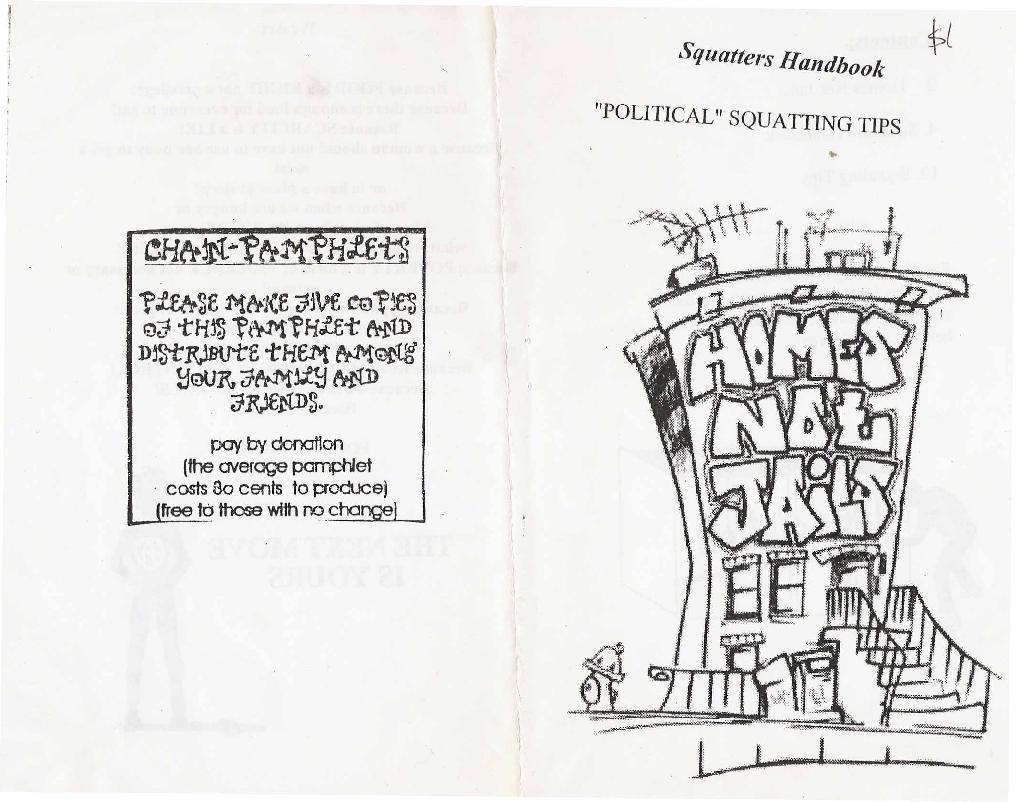 CHAIN-PAMPHLETS
PLEASE MAKE FIVE COPIES
OF THIS PAMPHLET AND
DISTRIBUTE THEM AMONG
YOUR FAMILY AND
FRIENDS.
pay by donation
(the average pamphlet
costs 8o cents to produce)
(free to those with no change)
THE NEXT MOVE
IS YOURS
$1
Squatters Handbook
"POLITICAL" SQUATTING TIPS
HOMES
NOT
JAILS